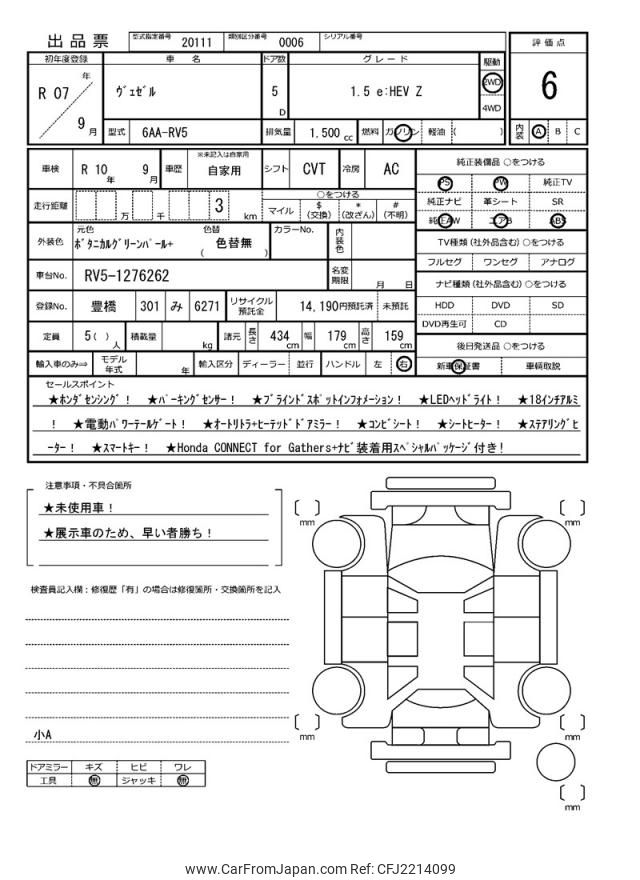 出品票
型式指定番号 20111 類別区分番号 0006 シリアル番号
評価点
初年度登録 車名 ドア数 グレード 駆動
R 07 年 9 月
ヴェゼル 5 D 1.5 e:HEV Z 2WD 4WD
6
型式 6AA-RV5 排気量 1.500 cc 燃料 ガソリン 軽油 ( )
内装 A B C
車検 R 10 年 9 月 車歴 ※未記入は自家用 自家用 シフト CVT 冷房 AC
純正装備品 ○をつける
PS PW 純正TV
純正ナビ 革シート SR
純正AW エアB ABS
走行距離 万 千 3 km
○をつける
マイル $(交換) *(改ざん) #(不明)
外装色 元色 ボタニカルグリーンパール+ 色替 ( 色替無 ) カラーNo. 内装色
TV種類 (社外品含む) ○をつける
フルセグ ワンセグ アナログ
車台No. RV5-1276262 名変期限 月 日
ナビ種類 (社外品含む) ○をつける
HDD DVD SD
DVD再生可 CD
登録No. 豊橋 301 み 6271 リサイクル預託金 14,190円預託済 未預託
定員 5( ) 人 積載量 kg 諸元 長さ 434 cm 幅 179 cm 高さ 159 cm
後日発送品 ○をつける
新車保証書 車輌取説
輸入車のみ⇒ モデル年式 年 輸入区分 ディーラー 並行 ハンドル 左 右
セールスポイント
★ホンダセンシング! ★パーキングセンサー! ★ブラインドスポットインフォメーション! ★LEDヘッドライト! ★18インチアルミ
! ★電動パワーテールゲート! ★オートリトラ+ヒーテッドドアミラー! ★コンビシート! ★シートヒーター! ★ステアリングヒ
ーター! ★スマートキー! ★Honda CONNECT for Gathers+ナビ装着用スペシャルパッケージ付き!
注意事項・不具合箇所
★未使用車!
★展示車のため、早い者勝ち!
検査員記入欄:修復歴「有」の場合は修復箇所・交換箇所を記入
小A
ドアミラー キズ ヒビ ワレ
工具 無 ジャッキ 無
[ ] mm
[ ] mm
[ ] mm
[ ] mm
[ ] mm
www.CarFromJapan.com Ref: CFJ2214099